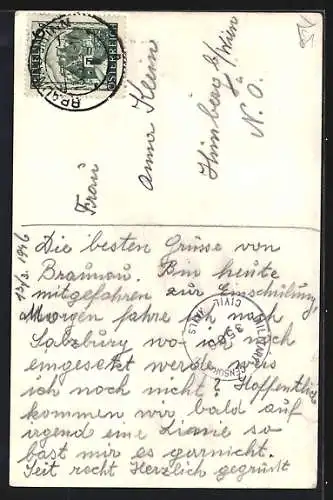 Frau
Anna Klein
Himberg b/Wien
N. Ö.
13/3. 1946
Die besten Grüsse von
Braunau. Bin heute
mitgefahren zur Einschulung,
Morgen fahre ich nach
Salzburg wo ich noch
eingesetzt werde weis
ich noch nicht? Hoffentlich
kommen wir bald auf
irgend eine Linie so
bast mir es garnicht.
Seit recht Herzlich gegrüßt
MILITARY CENSORSHIP
CIVIL MAILS
BRAUNAU INN
ÖSTERREICH